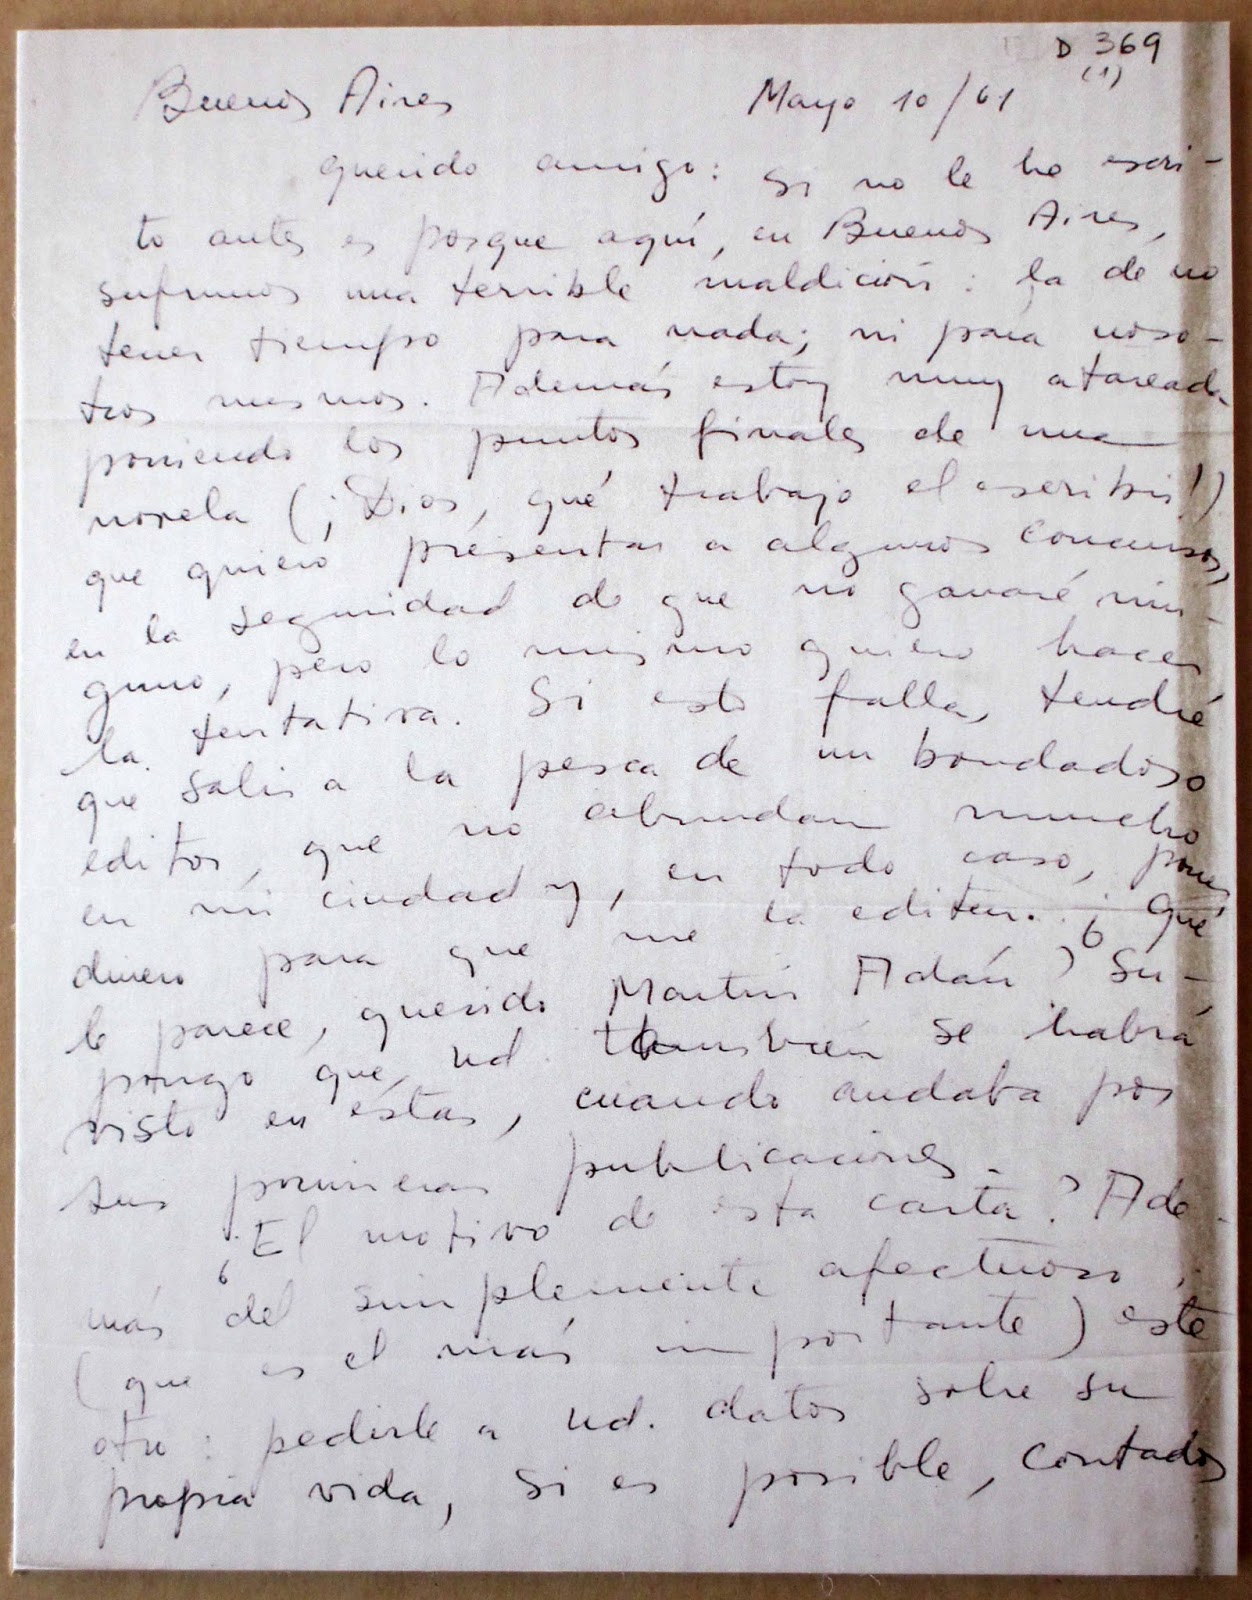 D 369
(1)
Buenos Aires Mayo 10/61
querido amigo: si no le he escri-
to antes es porque aquí, en Buenos Aires,
sufrimos una terrible maldición: la de no
tener tiempo para nada; ni para noso-
tros mismos. Además estoy muy atareada
poniendo los puntos finales de una
novela (¡Dios, qué trabajo el escribir!)
que quiero presentar a algunos concursos,
en la seguridad de que no ganaré nin-
guno, pero lo mismo quiero hacer
la tentativa. Si esto falla, tendré
que salir a la pesca de un bondadoso
editor, que no abundan mucho
en mi ciudad y, en todo caso, poner
dinero para que me la editen. ¿Qué
le parece, querido Martín Adán? Su-
pongo que ud. también se habrá
visto en éstas, cuando andaba por
sus primeras publicaciones.
¿El motivo de esta carta? Ade-
más del simplemente afectuoso,
(que es el más importante) este
otro: pedirle a ud. datos sobre su
propia vida, si es posible, contados